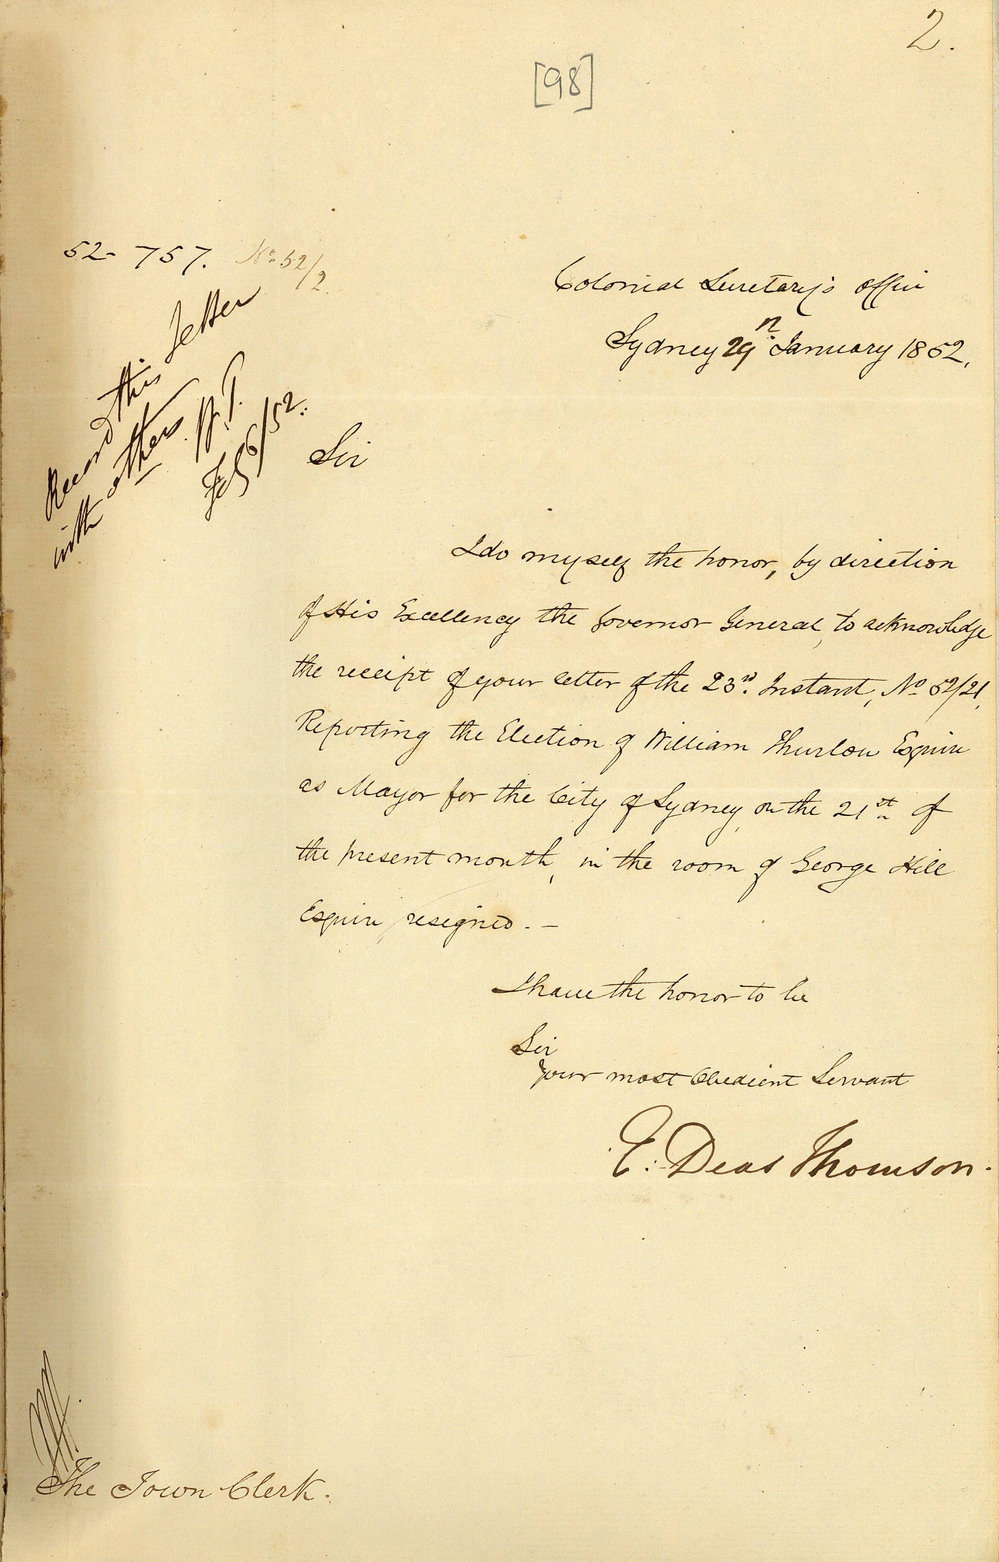 2.
[98]
52-757. No. 52/2.
Colonial Secretary's Office
Sydney 29th January 1852.
Record this Letter
with others W.T.
Feb 6/52.
Sir
I do myself the honor, by direction
of His Excellency the Governor General, to acknowledge
the receipt of your letter of the 23rd. Instant, No 52/21,
Reporting the Election of William Thurlow Esquire
as Mayor for the City of Sydney, on the 21st of
the present month, in the room of George Hill
Esquire, resigned. —
I have the honor to be
Sir
Your most Obedient Servant
E. Deas Thomson.
The Town Clerk.